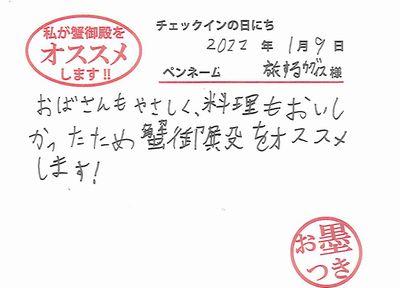 私が蟹御殿を
オススメ
します!!
チェックインの日にち
2022 年 1月 9 日
ペンネーム 旅するウグイス 様
おばさんもやさしく、料理もおいし
かったため蟹御殿をオススメ
します!
お墨
つき